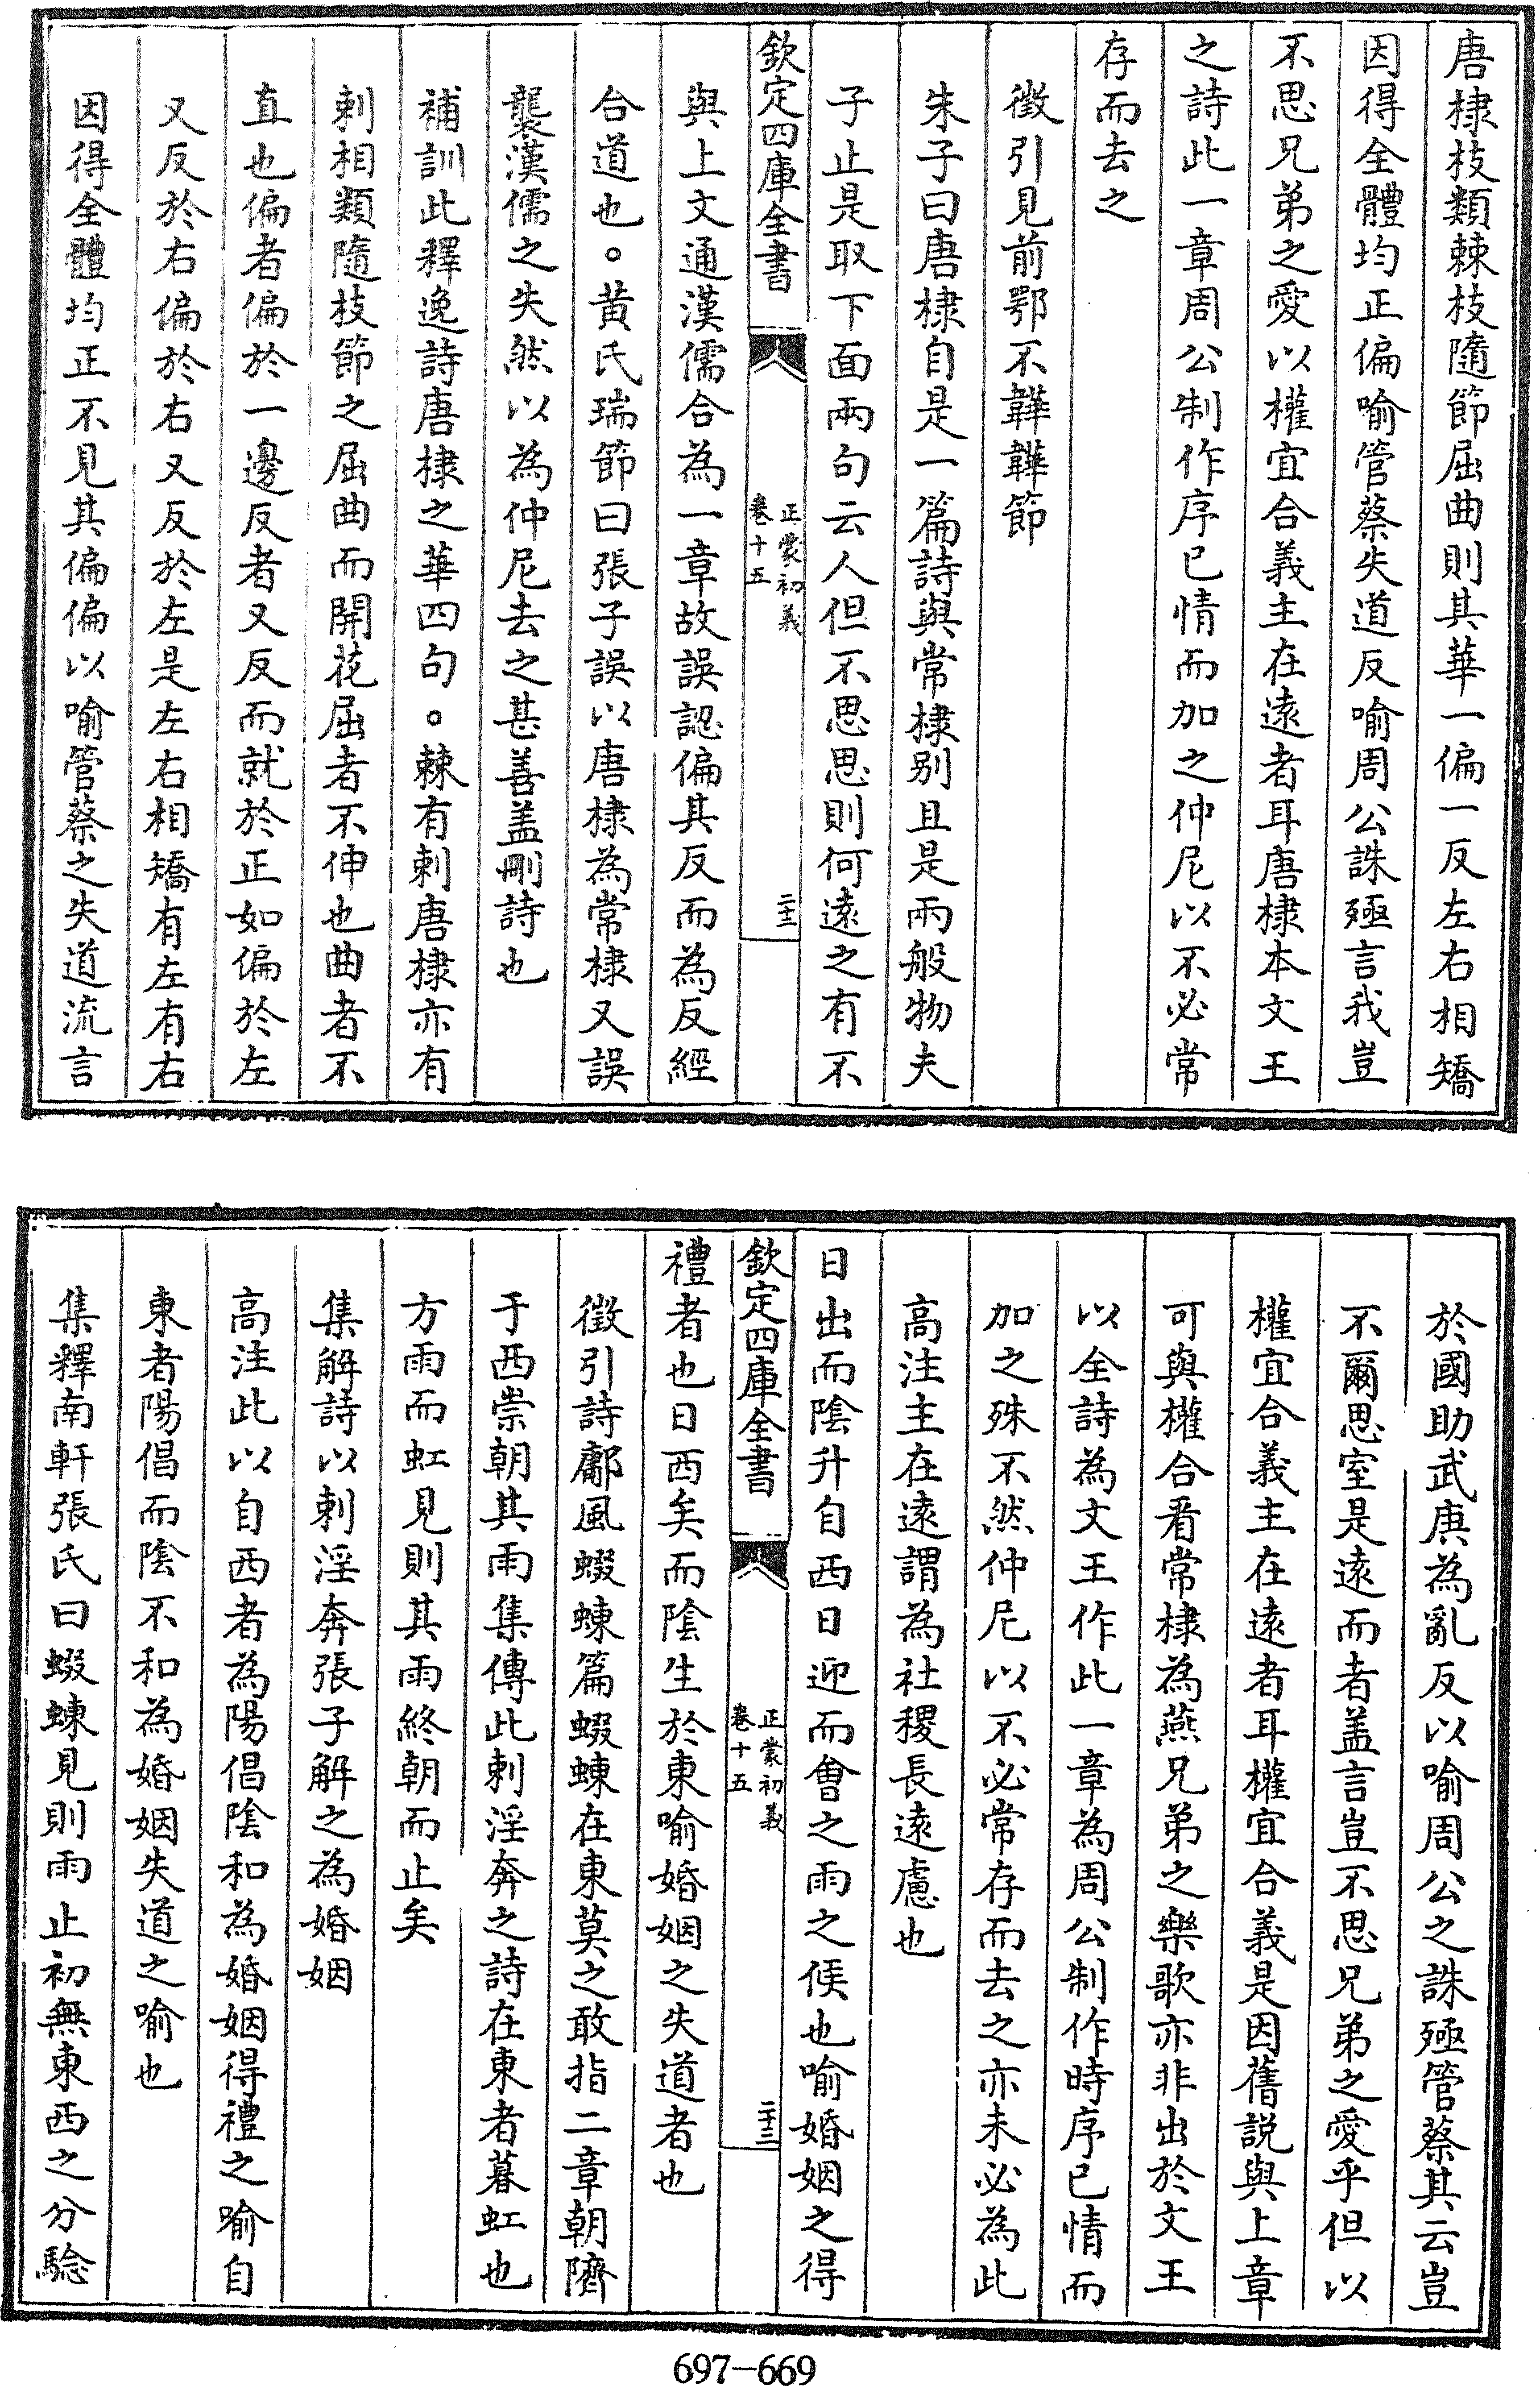 唐棣枝類棘枝隨節屈曲則其華一偏一反左右相矯
因得全體均正偏喻管蔡失道反喻周公誅殛言我豈
不思兄弟之愛以權宜合義主在遠者耳唐棣本文王
之詩此一章周公制作序已情而加之仲尼以不必常
存而去之
徵引見前鄂不韡韡節
朱子曰唐棣自是一篇詩與常棣别且是兩般物夫
子止是取下面兩句云人但不思思則何遠之有不
欽定四庫全書
正蒙初義
卷十五
二十二
與上文通漢儒合為一章故誤認偏其反而為反經
合道也。黄氏瑞節曰張子誤以唐棣為常棣又誤
襲漢儒之失然以為仲尼去之甚善盖刪詩也
補訓此釋逸詩唐棣之華四句。棘有刺唐棣亦有
刺相類隨枝節之屈曲而開花屈者不伸也曲者不
直也偏者偏於一邊反者又反而就於正如偏於左
又反於右偏於右又反於左是左右相矯有左有右
因得全體均正不見其偏偏以喻管蔡之失道流言
於國助武庚為亂反以喻周公之誅殛管蔡其云豈
不爾思室是遠而者盖言豈不思兄弟之愛乎但以
權宜合義主在遠者耳權宜合義是因舊說與上章
可與權合看常棣為燕兄弟之樂歌亦非出於文王
以全詩為文王作此一章為周公制作時序已情而
加之殊不然仲尼以不必常存而去之亦未必為此
高注主在遠謂為社稷長遠慮也
日出而陰升自西日迎而會之雨之候也喻婚姻之得
欽定四庫全書
正蒙初義
卷十五
二十三
禮者也日西矣而陰生於東喻婚姻之失道者也
徵引詩鄘風蝃蝀篇蝃蝀在東莫之敢指二章朝隮
于西崇朝其雨集傳此刺淫奔之詩在東者暮虹也
方雨而虹見則其雨終朝而止矣
集解詩以刺淫奔張子解之為婚姻
高注此以自西者為陽倡陰和為婚姻得禮之喻自
東者陽倡而陰不和為婚姻失道之喻也
集釋南軒張氏曰蝃蝀見則雨止初無東西之分騐
697-669